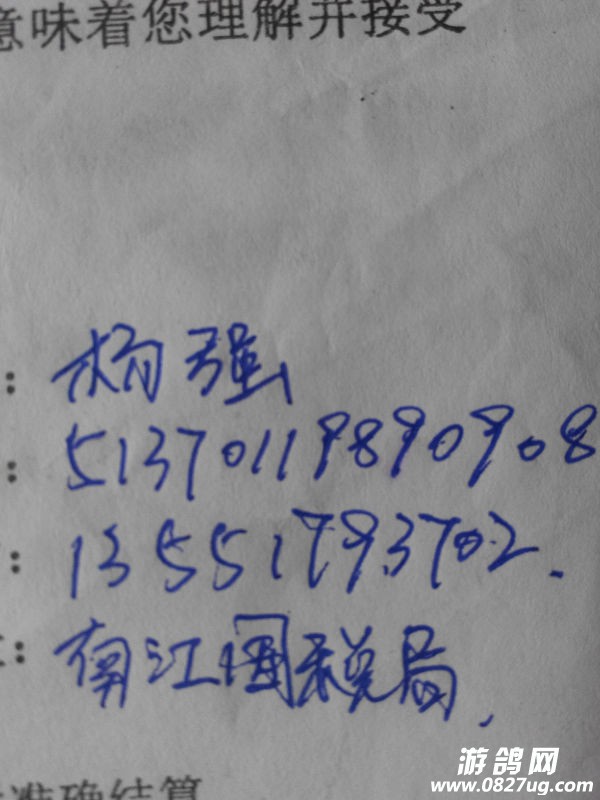 意味着您理解并接受
: 杨强
: 51370119890908
: 13551793702.
: 南江国税局,
准确结算
游鸽网
www.0827ug.com